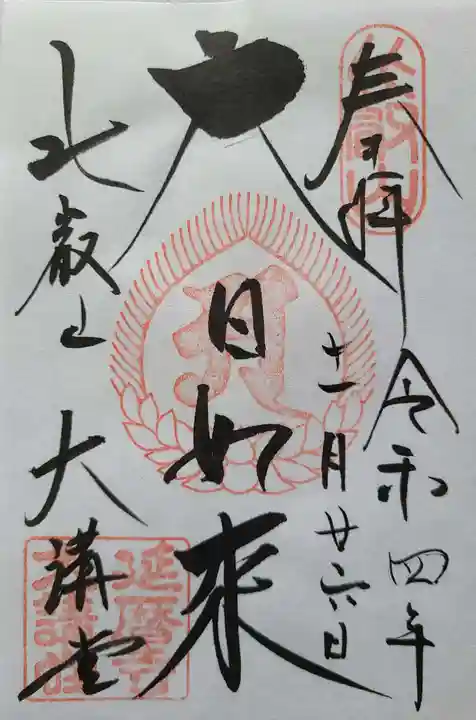 奉拝
令和四年
十一月廿六日
大日如来
比叡山 大講堂
比叡山
延暦寺
大講堂